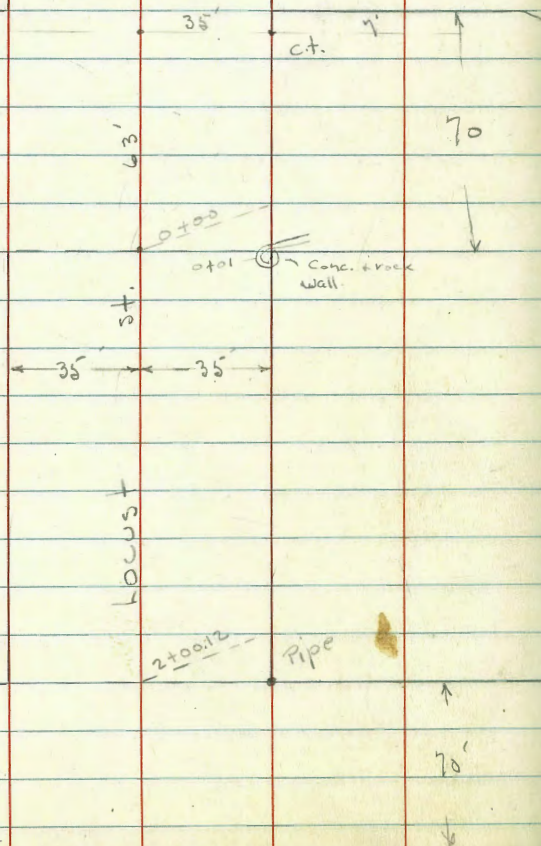 35' 7'
c.t.
70
63'
0+00
0+01 Conc. & rock
wall
35' 35'
Locust St.
2+00.12 Pipe
70'